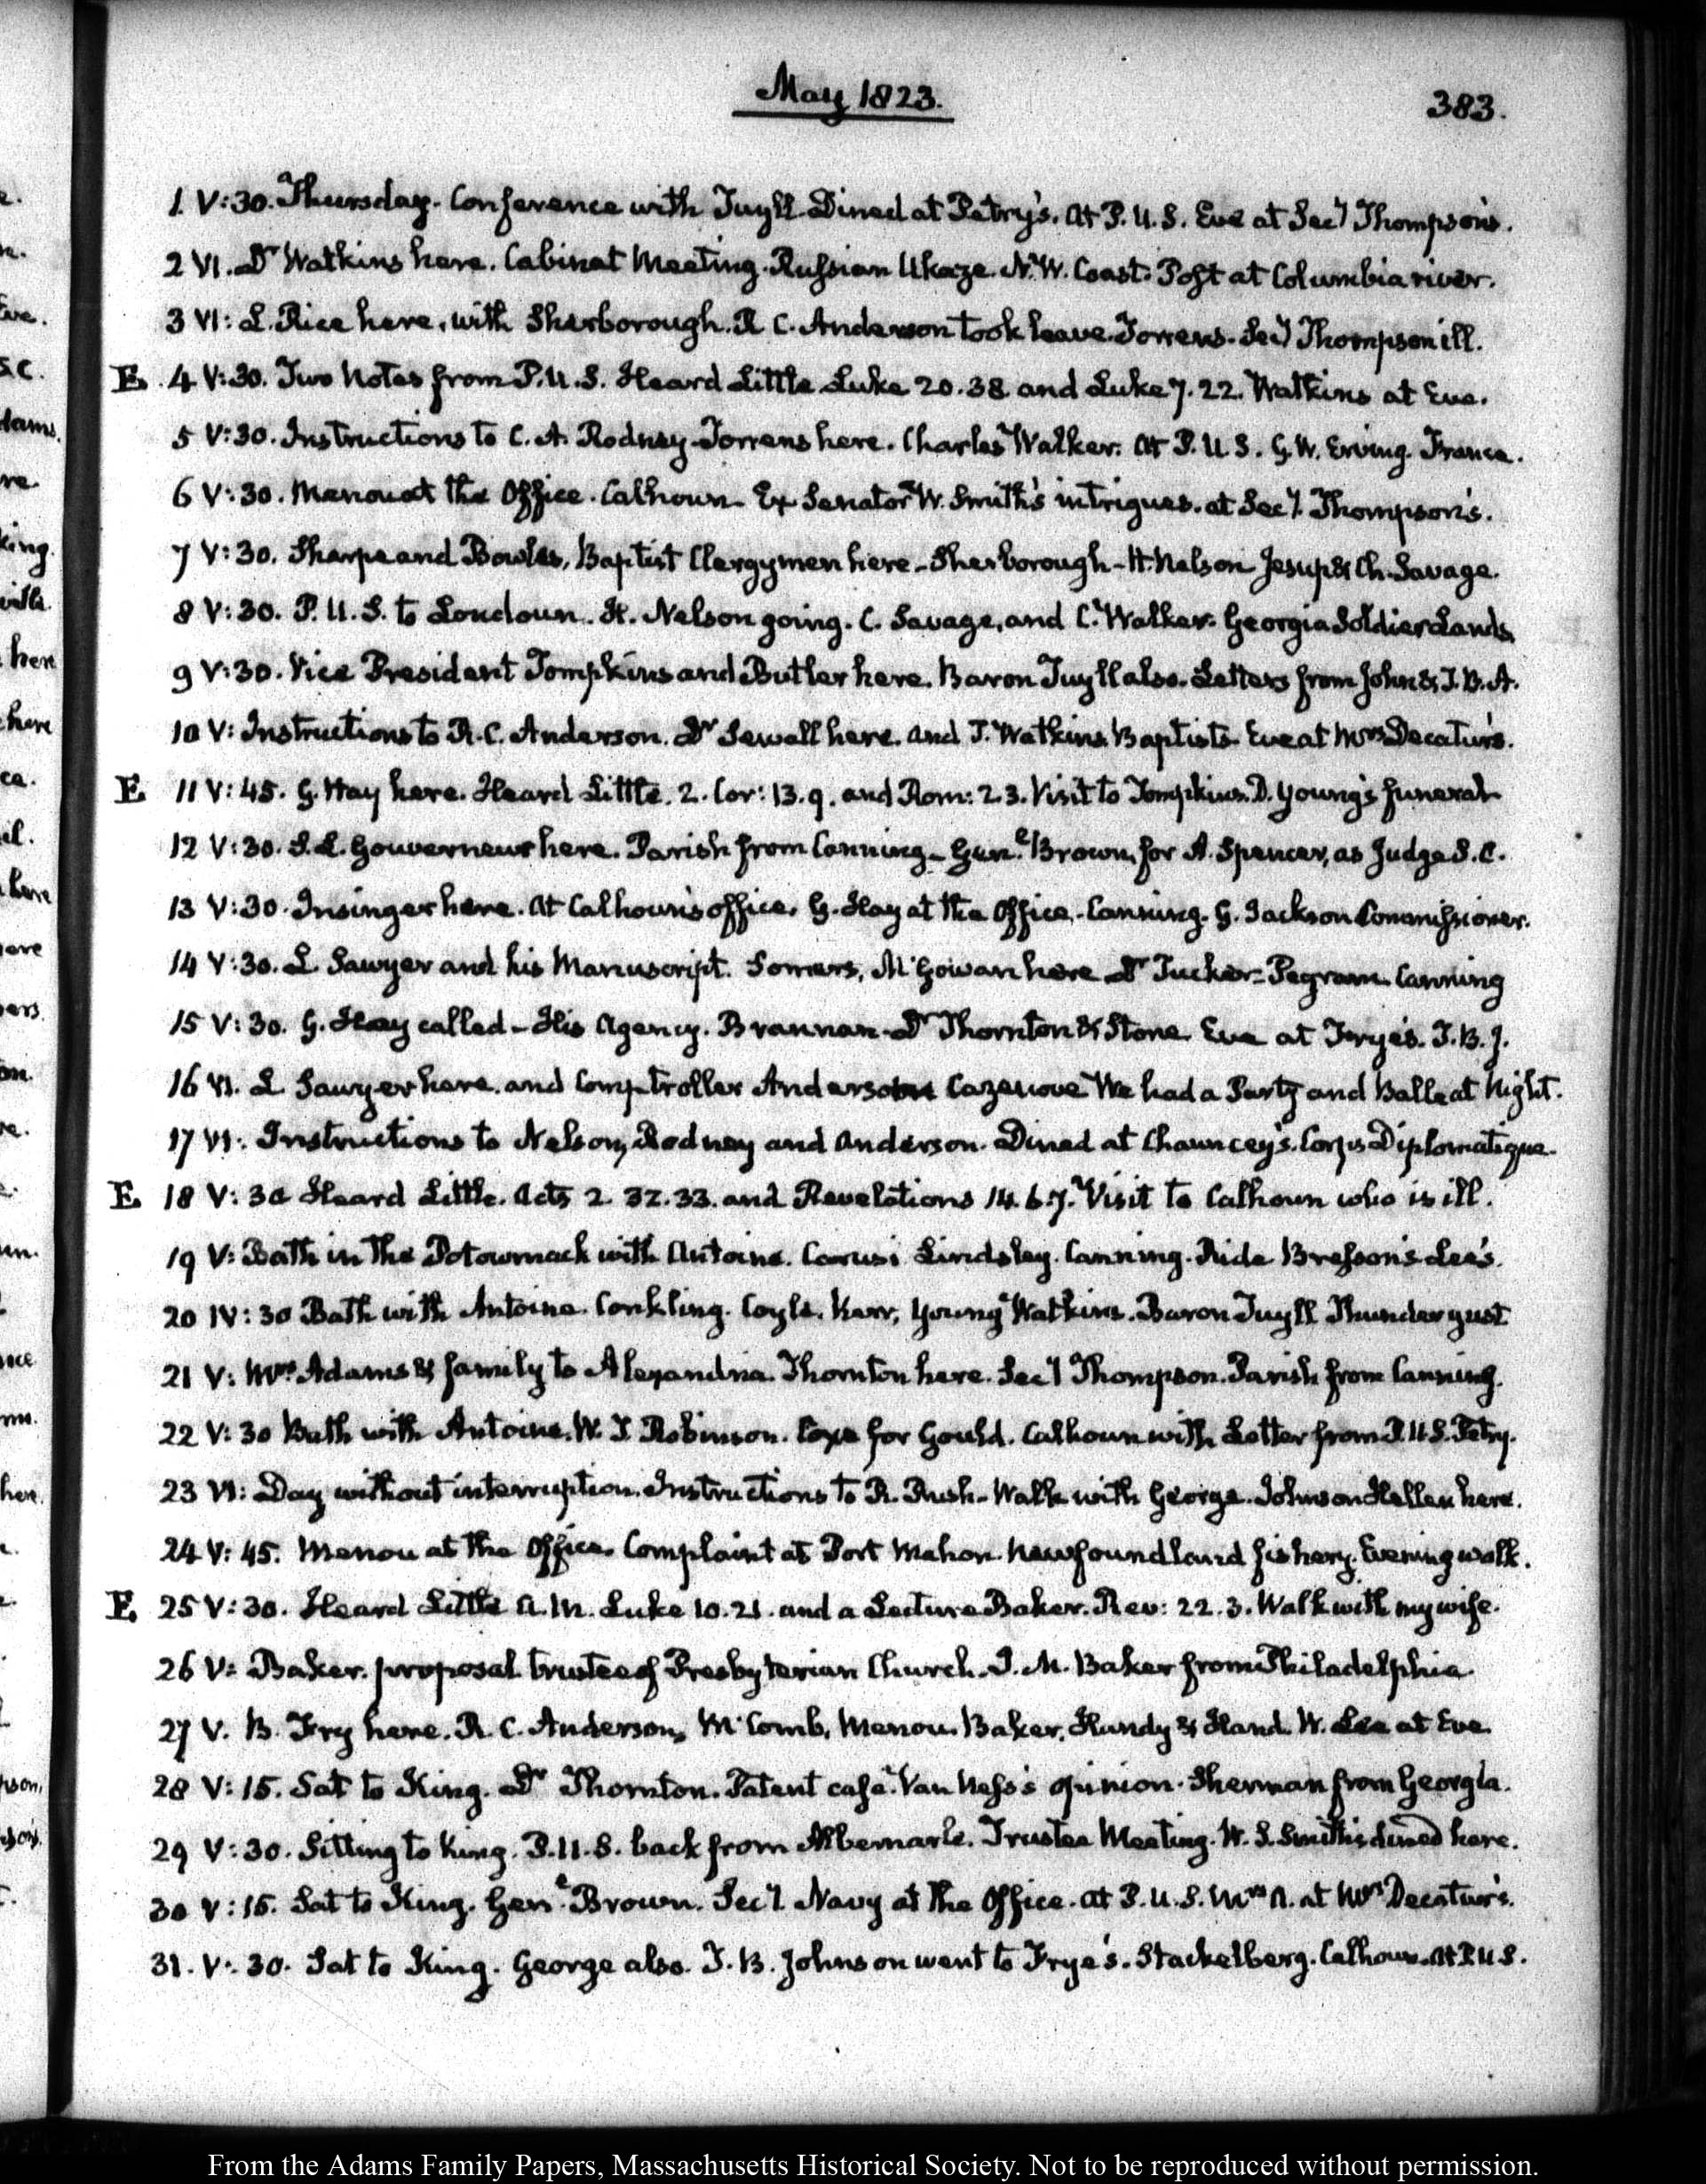 May 1823.
383.
1. V:30. Thursday. Conference with Tuyll. Dined at Petry's. At P. U. S. Eve at Secy Thompson's.
2 VI. Dr Watkins here. Cabinet Meeting. Russian Ukaze. N. W. Coast. Post at Columbia river.
3 VI: L. Rice here, with Sherborough. R. C. Anderson took leave. Torrens. Secy Thompson ill.
E. 4 V:30. Two Notes from P. U. S. Heard Little Luke 20. 38. and Luke 7. 22. Watkins at Eve.
5 V:30. Instructions to C. A. Rodney. Torrens here. Charles Walker. At P. U. S. G. W. Erving. France.
6 V:30. Menou at the Office. Calhoun. Ex Senator W. Smith's intrigues. at Secy. Thompson's.
7 V:30. Sharpe and Bowles, Baptist Clergymen here - Sherborough - H. Nelson Jesup & Ch. Savage.
8 V:30. P. U. S. to Loudoun. H. Nelson going. C. Savage, and C. Walker. Georgia Soldier Lands.
9 V:30. Vice President Tompkins and Butler here. Baron Tuyll also. Letters from John & T. B. A.
10 V: Instructions to R. C. Anderson. Dr Sewall here. and T. Watkins Baptists. Eve at Mrs Decatur's.
E. 11 V:45. G. Hay here. Heard Little. 2. Cor: 13. 9. and Rom: 2 3. Visit to Tompkins. D. Young's funeral
12 V:30. S. L. Gouverneur here. Parish from Canning - Genl. Brown, for A. Spencer, as Judge S. C.
13 V:30. Insinger here. At Calhoun's office. G. Hay at the Office. Canning. G. Jackson Commissioner.
14 V:30. L. Sawyer and his Manuscript. Somers, McGowan here Dr Tucker - Pegram. Canning
15 V:30. G. Hay called - His Agency. Brannan - Dr Thornton & Stone Eve at Frye's. T. B. J.
16 VI. L Sawyer here. and Comptroller Anderson Cazenove We had a Party and Balle at Night.
17 VI: Instructions to Nelson, Rodney and Anderson. Dined at Chauncey's. Corps Diplomatique.
E. 18 V:30 Heard Little. Acts 2. 32. 33. and Revelations 14. 6. 7. Visit to Calhoun who is ill.
19 V: Bath in the Potowmack with Antoine. Carusi Lindsley. Canning. Ride Bresson's Lee's.
20 IV:30 Bath with Antoine. Conkling. Coyle. Karr, young Watkins. Baron Tuyll Thunder gust
21 V: Mrs Adams & family to Alexandria. Thornton here. Secy Thompson. Parish from Canning.
22 V:30 Bath with Antoine. W. T. Robinson. Coxe for Gould. Calhoun with Letter from P. U. S. Petry.
23 VI: Day without interruption. Instructions to R. Rush - Walk with George. Johnson Hellen here.
24 V:45. Menou at the Office. Complaint at Port Mahon. Newfoundland fishery. Evening walk.
E. 25 V:30. Heard Little A. M. Luke 10. 21. and a Lecture Baker. Rev: 22. 3. Walk with my wife.
26 V: Baker. proposal trustee of Presbyterian Church. J. M. Baker from Philadelphia
27 V. B. Fry here. R. C. Anderson, McComb, Menou. Baker, Hundy & Hand. W. Lee at Eve
28 V:15. Sat to King. Dr Thornton. Patent case. Van Ness's opinion. Sherman from Georgia.
29 V:30. Sitting to King. P. U. S. back from Albemarle. Trustee Meeting. W. S. Smiths dined here.
30 V:15. Sat to King. Genl. Brown. Secy. Navy at the Office. at P. U. S. Mrs A. at Mrs Decatur's.
31. V:30. Sat to King. George also. T. B. Johnson went to Frye's. Stackelberg. Calhoun. At P. U S.
From the Adams Family Papers, Massachusetts Historical Society. Not to be reproduced without permission.